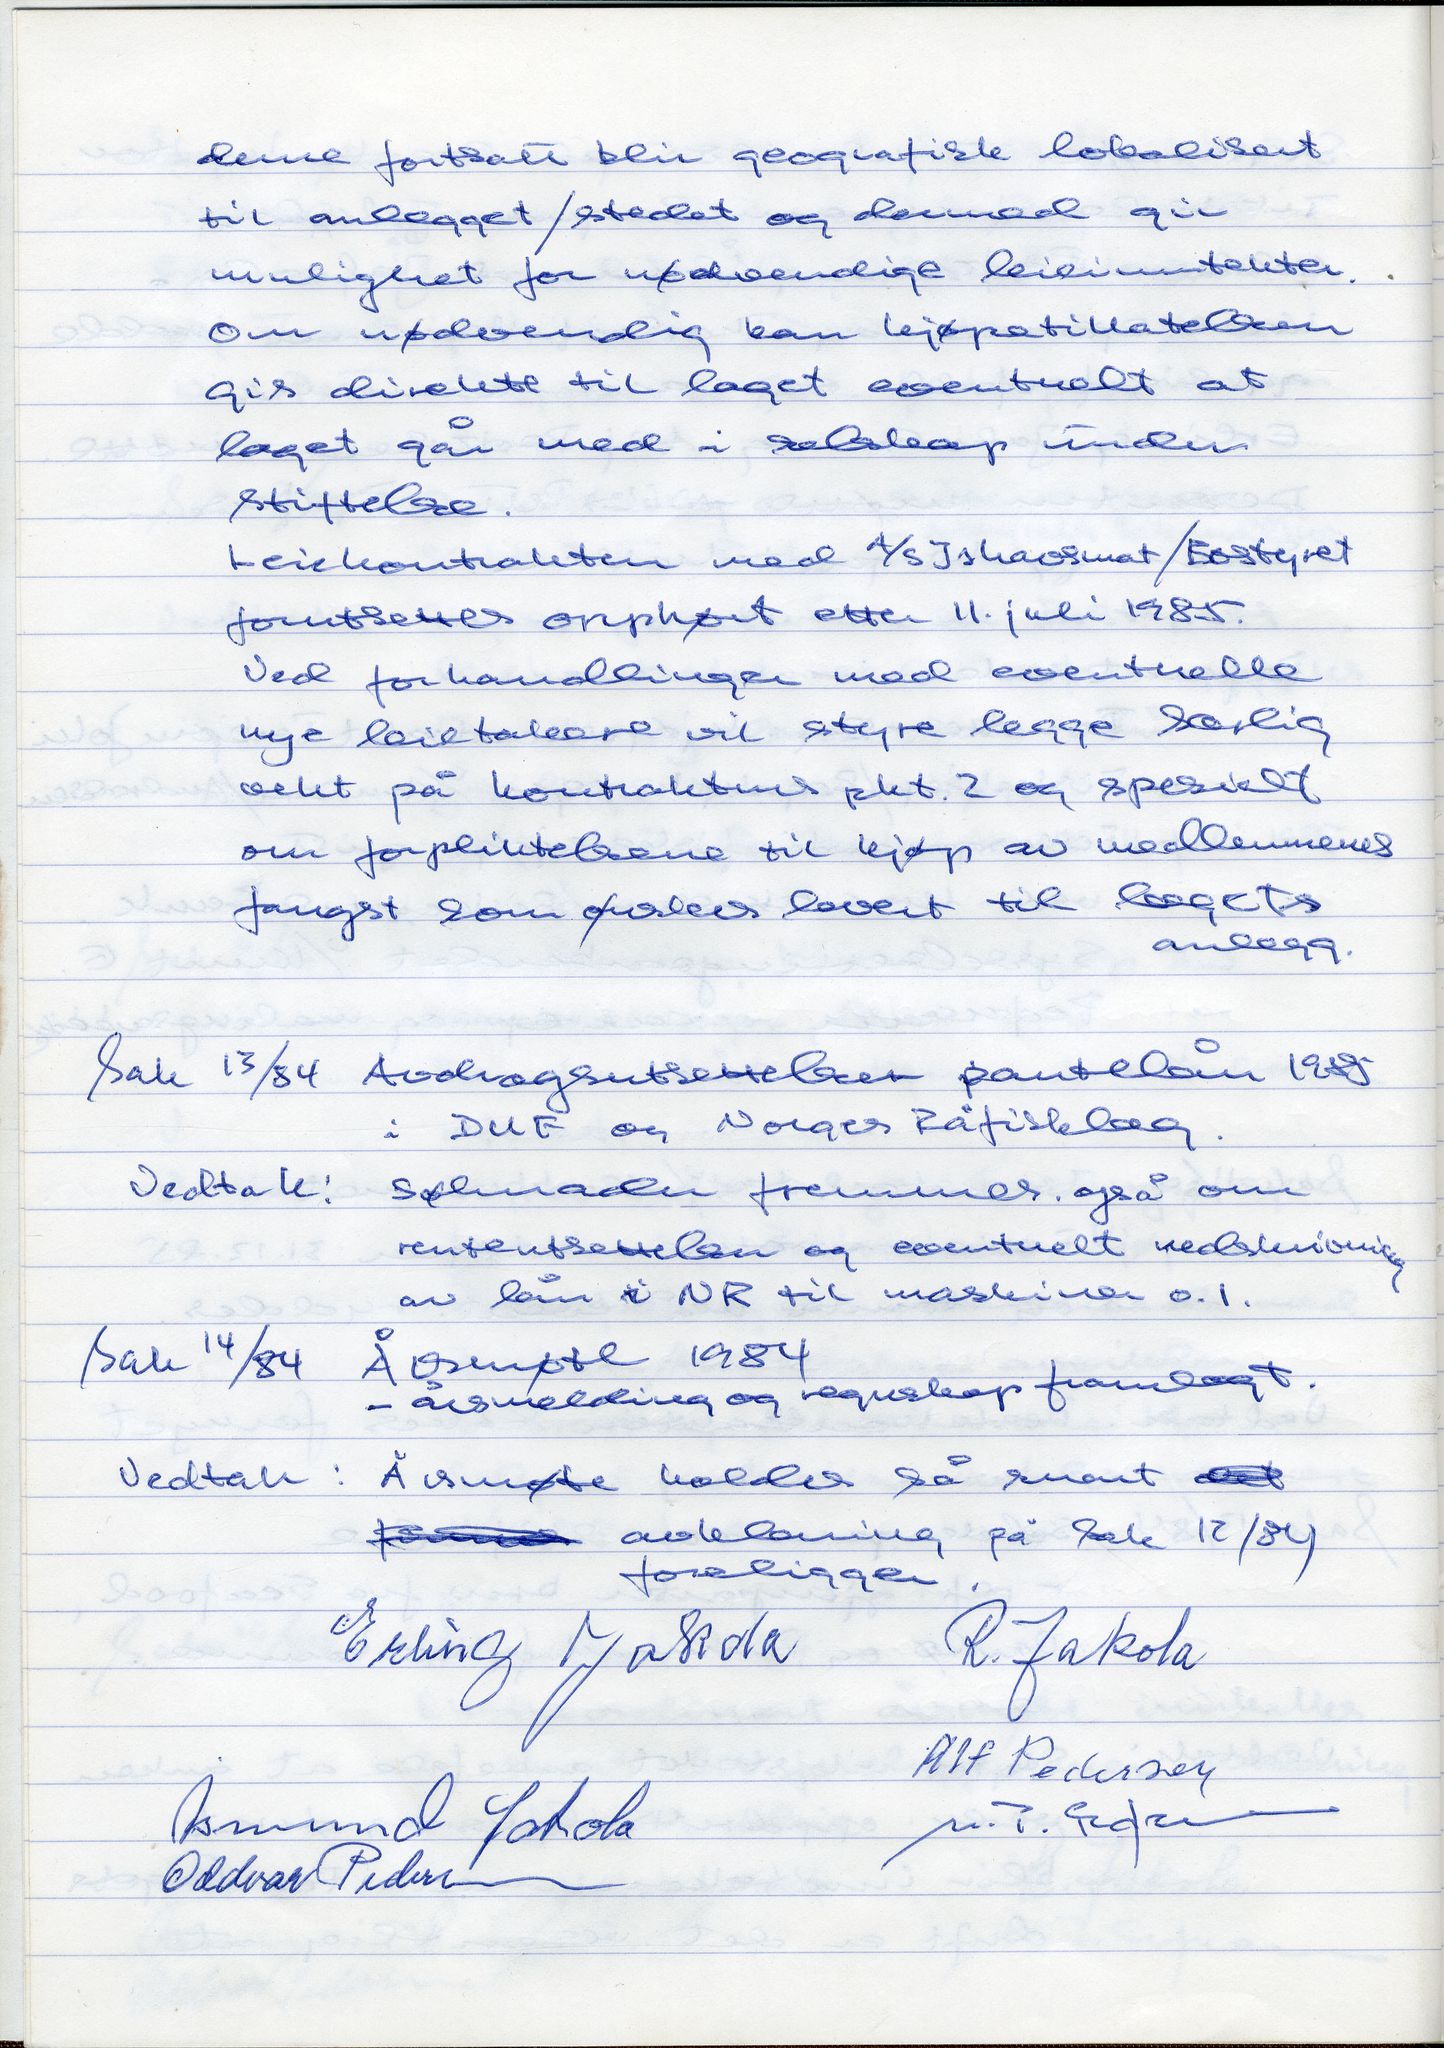 denne fortsatt blir geografisk lokalisert
til anlegget/stedet og dermed gir
mulighet for nødvendige leieinntekter.
Om nødvendig kan kjøpetillatelsen
gis direkte til laget eventuelt at
laget går med i selskap under
stiftelse.
Leiekontrakten med A/S Ishavsmat/Bostyret
forutsettes opphørt etter 11. juli 1985.
Ved forhandlinger med eventuelle
nye leietakere vil styre legge særlig
vekt på kontraktens pkt. 2 og spesielt
om forpliktelsene til kjøp av medlemmenes
fangst som ønskes levert til lagets
anlegg.
Sak 13/84 Avdragsutsettelser pantelån 1985
i DUF og Norges Råfisklag.
Vedtak: Søknader fremmes. også om
renteutsettelser og eventuelt nedskrivning
av lån i NR til maskiner o.l.
Sak 14/84 Årsmøte 1984
- årsmelding og regnskap framlagt.
Vedtak: Årsmøte holdes så snart
avklaring på Sak 12/84
foreligger.
Erling Jakola R. Jakola
Alf Pedersen
Asmund Jakola
Oddvar Pedersen